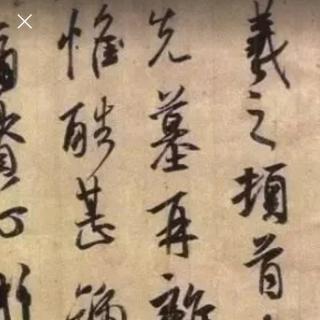 羲之頓首
先墓再離
惟酷甚
痛貫心肝